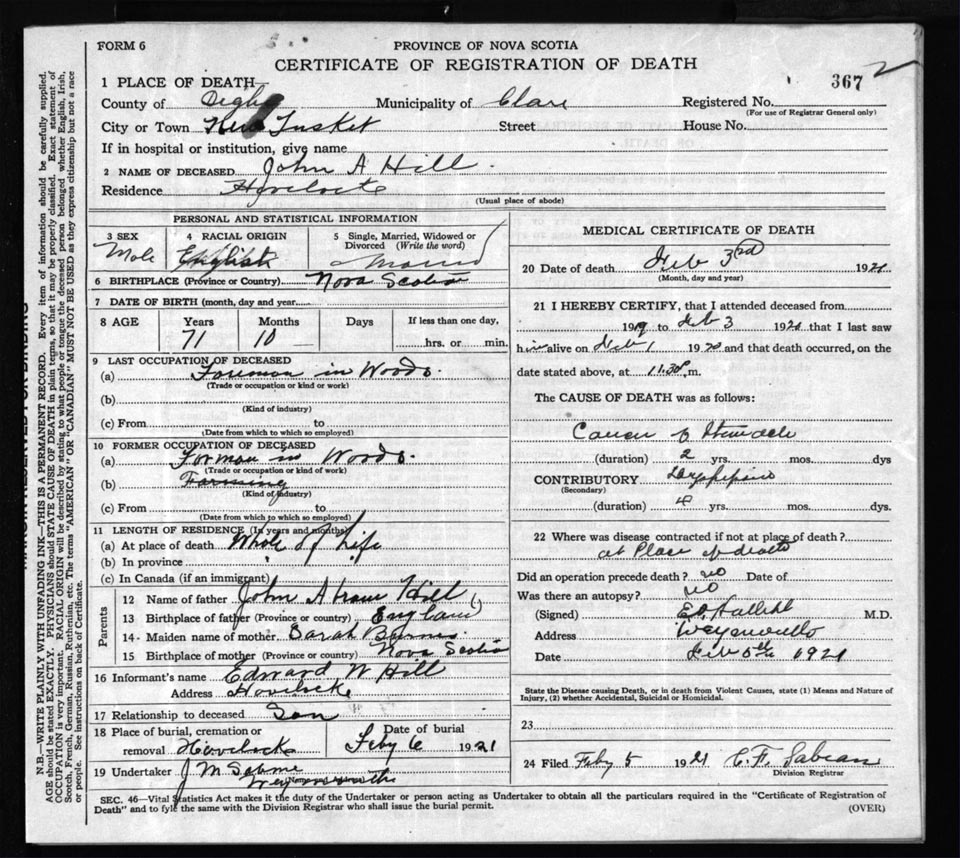 FORM 6
PROVINCE OF NOVA SCOTIA
CERTIFICATE OF REGISTRATION OF DEATH
367
2
1 PLACE OF DEATH
County of Digby Municipality of Clare Registered No.
(For use of Registrar General only)
City or Town New Tusket Street House No.
If in hospital or institution, give name
2 NAME OF DECEASED John A Hill
Residence Havelock
(Usual place of abode)
PERSONAL AND STATISTICAL INFORMATION
3 SEX 4 RACIAL ORIGIN 5 Single, Married, Widowed or Divorced (Write the word)
Male English
6 BIRTHPLACE (Province or Country) Nova Scotia
7 DATE OF BIRTH (month, day and year)
8 AGE Years Months Days If less than one day,
71 10 — hrs. or min.
9 LAST OCCUPATION OF DECEASED
(a) Foreman in Woods.
(Trade or occupation or kind or work)
(b)
(Kind of industry)
(c) From to
(Date from which to which so employed)
10 FORMER OCCUPATION OF DECEASED
(a) Forman in Woods.
(Trade or occupation or kind of work)
(b) Farming
(Kind of industry)
(c) From to
(Date from which to which so employed)
11 LENGTH OF RESIDENCE (In years and months)
(a) At place of death Whole of Life
(b) In province
(c) In Canada (if an immigrant)
Parents
12 Name of father John Hill
13 Birthplace of father (Province or Country) England
14 Maiden name of mother Sarah
15 Birthplace of mother (Province or country) Nova Scotia
16 Informant's name Edward W Hill
Address Havelock
17 Relationship to deceased Son
18 Place of burial, cremation or Date of burial
removal Havelock Feby 6 1921
19 Undertaker J M
SEC. 46—Vital Statistics Act makes it the duty of the Undertaker or person acting as Undertaker to obtain all the particulars required in the "Certificate of Registration of
Death" and to fyle the same with the Division Registrar who shall issue the burial permit. (OVER)
MEDICAL CERTIFICATE OF DEATH
20 Date of death Feb 3rd 1921
(Month, day and year)
21 I HEREBY CERTIFY, that I attended deceased from
1919 to Feb 3 1921 that I last saw
him alive on Feb 1 and that death occurred, on the
date stated above, at 11.30 m.
The CAUSE OF DEATH was as follows:
Cancer of
(duration) 2 yrs. mos. dys
CONTRIBUTORY
(Secondary)
(duration) yrs. mos. dys.
22 Where was disease contracted if not at place of death?
at Place of death
Did an operation precede death? no Date of
Was there an autopsy? no
(Signed) M.D.
Address
Date Feb 5th 1921
State the Disease causing Death, or in death from Violent Causes, state (1) Means and Nature of
Injury, (2) whether Accidental, Suicidal or Homicidal.
23
24 Filed Feby 5 1921 C. F.
Division Registrar
N.B.—WRITE PLAINLY WITH UNFADING INK—THIS IS A PERMANENT RECORD. Every item of information should be carefully supplied.
AGE should be stated EXACTLY. PHYSICIANS should STATE CAUSE OF DEATH in plain terms, so that it may be properly classified. Exact statement of
OCCUPATION is very important. RACIAL ORIGIN will be described by stating to what people or tongue the deceased person belonged whether English, Irish,
Scotch, French, German, Russian, Ruthenian, etc. The terms "AMERICAN" OR "CANADIAN" MUST NOT BE USED as they express citizenship but not a race
or people. See instructions on back of Certificate.